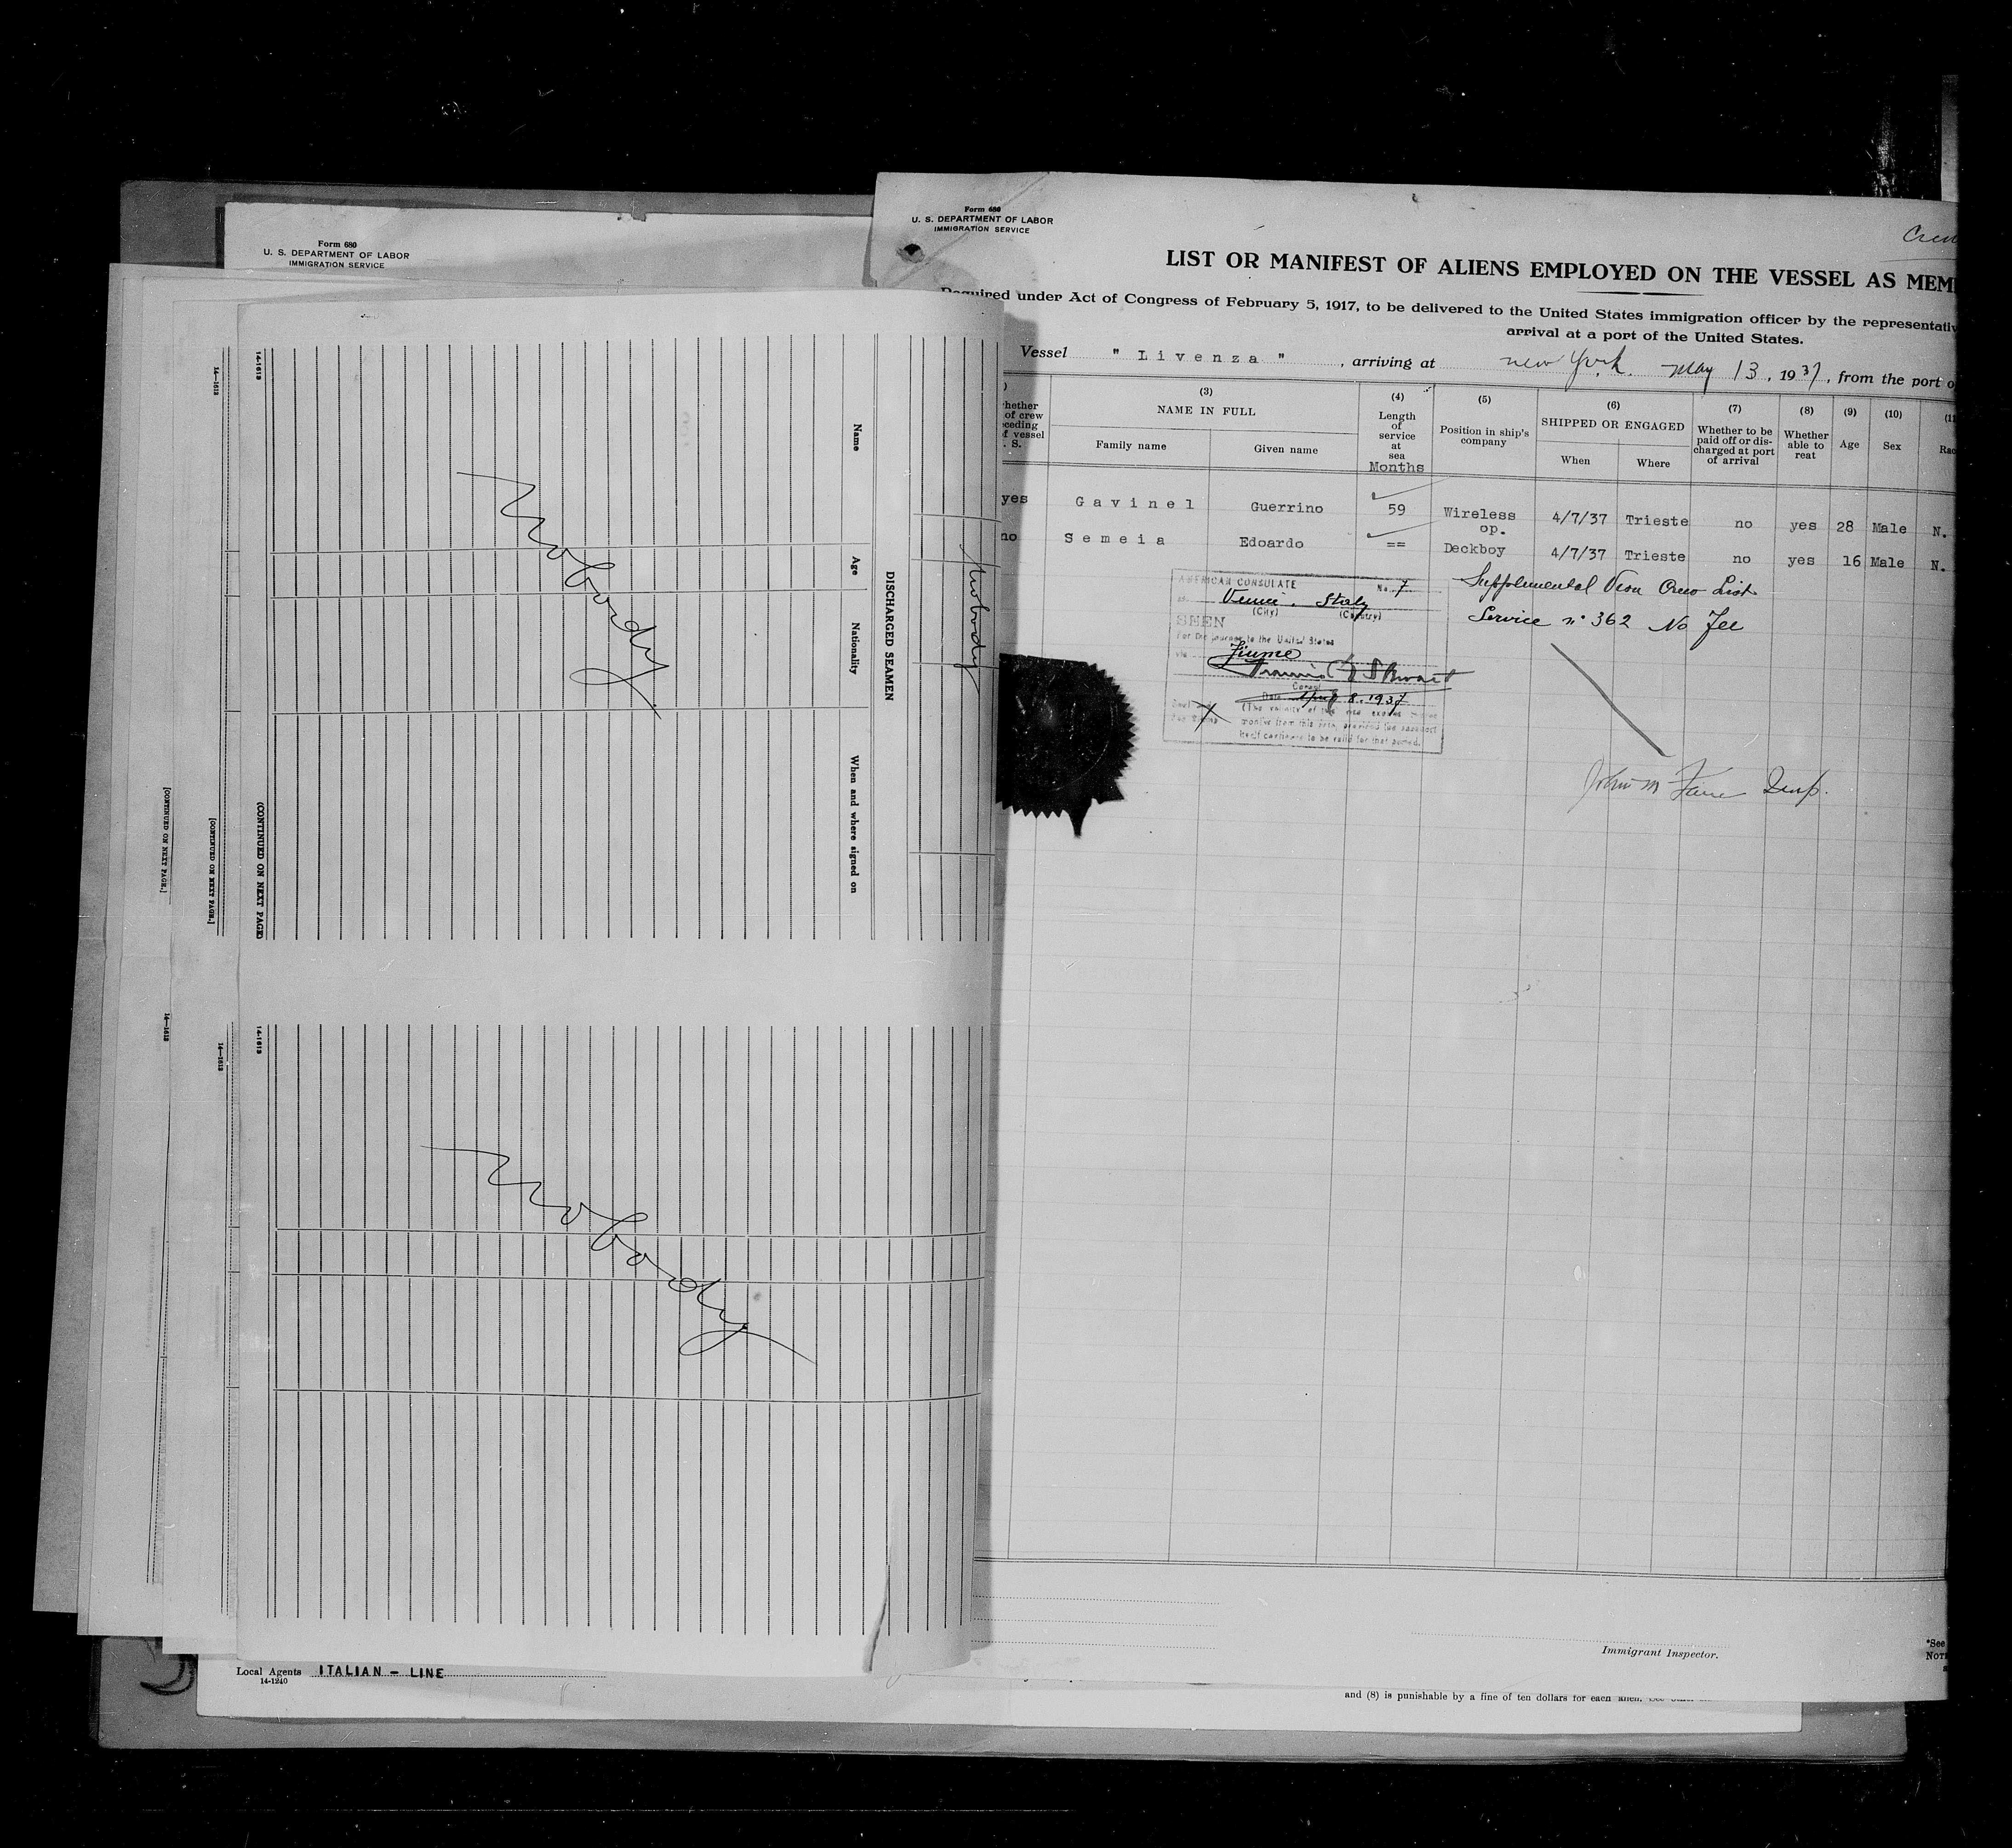 Form 680
U. S. DEPARTMENT OF LABOR
IMMIGRATION SERVICE
14-1613
[CONTINUED ON NEXT PAGE.]
14-1613
[CONTINUED ON NEXT PAGE.]
14-1613
14-1613
14-1613
(CONTINUED ON NEXT PAGE)
14-1613
DISCHARGED SEAMEN
Name
Age
Nationality
When and where signed on
Nobody
Nobody
Nobody
Local Agents ITALIAN - LINE
14-1240
Form 680
U. S. DEPARTMENT OF LABOR
IMMIGRATION SERVICE
Crew
LIST OR MANIFEST OF ALIENS EMPLOYED ON THE VESSEL AS MEM
Required under Act of Congress of February 5, 1917, to be delivered to the United States immigration officer by the representativ
arrival at a port of the United States.
Vessel " Livenza " , arriving at New York. May 13, 1937, from the port o
(3) (4) (5) (6) (7) (8) (9) (10) (11
hether
of crew
ceding
f vessel
. S.
NAME IN FULL
Family name
Given name
Length
of
service
at
sea
Months
Position in ship's
company
SHIPPED OR ENGAGED
When
Where
Whether to be
paid off or dis-
charged at port
of arrival
Whether
able to
reat
Age
Sex
Rac
yes Gavinel Guerrino 59 Wireless op. 4/7/37 Trieste no yes 28 Male N.
no Semeia Edoardo == Deckboy 4/7/37 Trieste no yes 16 Male N.
AMERICAN CONSULATE No. 7
at Venice, Italy
(City) (Country)
SEEN
For the journey to the United States
via Fiume
Consul
Date April 8, 1937
(The validity of this visa expires
months from this date, provided the passport
itself continues to be valid for that period.
Supplemental Visa Crew List
Service nº 362 No Fee
John M Insp.
Immigrant Inspector.
*See
NOTE
and (8) is punishable by a fine of ten dollars for each alien.